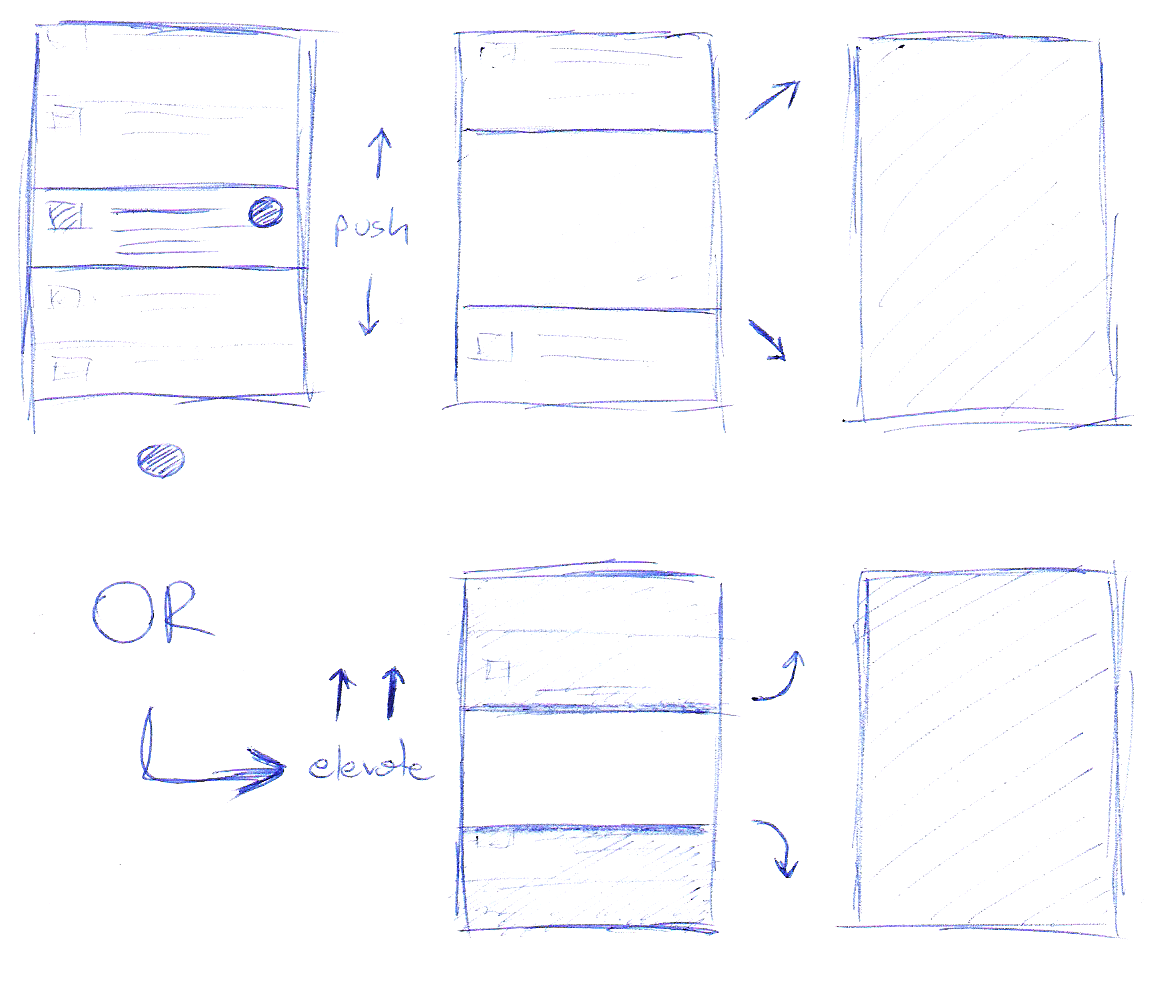 push
OR
elevate